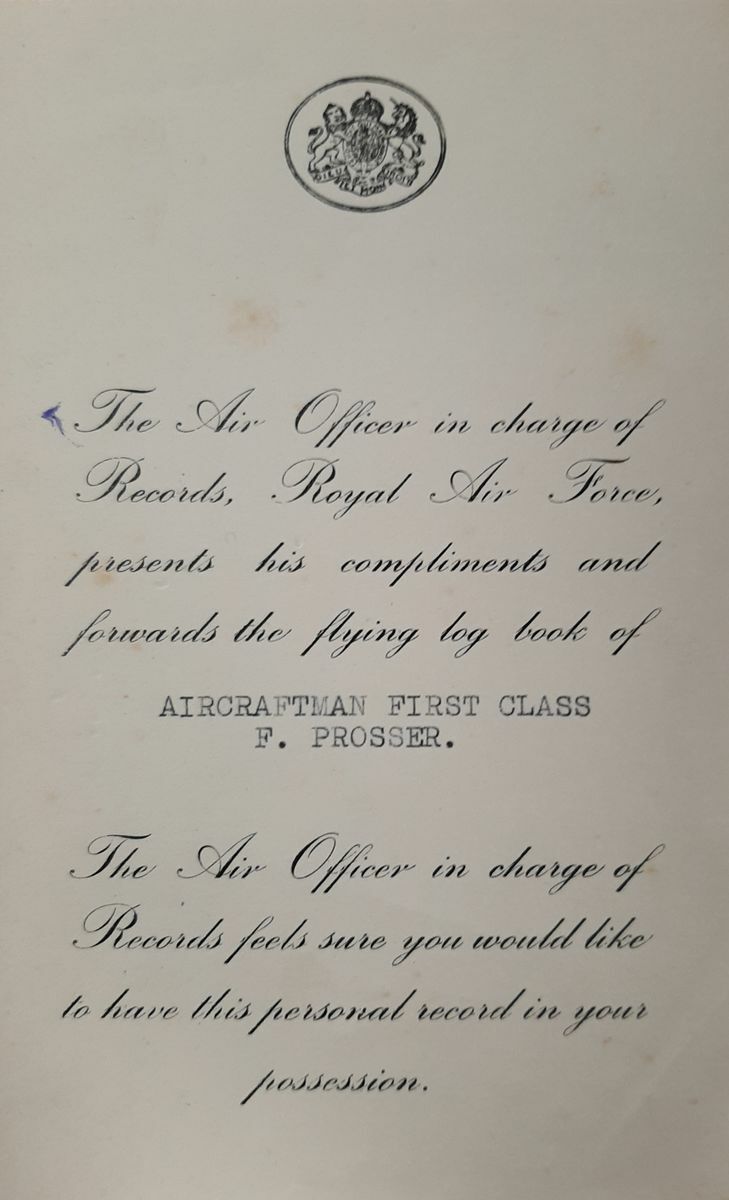 DIEU ET MON DROIT
The Air Officer in charge of
Records, Royal Air Force,
presents his compliments and
forwards the flying log book of
AIRCRAFTMAN FIRST CLASS
F. PROSSER.
The Air Officer in charge of
Records feels sure you would like
to have this personal record in your
possession.